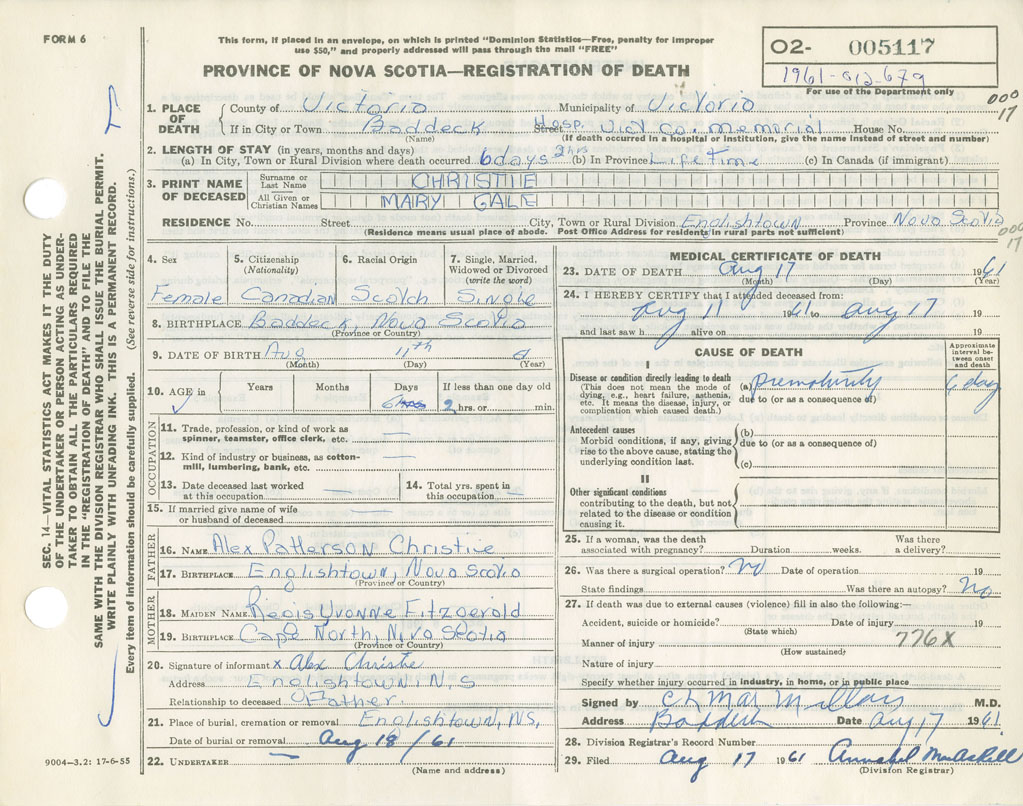 FORM 6
This form, if placed in an envelope, on which is printed "Dominion Statistics—Free, penalty for improper
use $50," and properly addressed will pass through the mail "FREE"
PROVINCE OF NOVA SCOTIA—REGISTRATION OF DEATH
O2- 005117
1961-012-679
For use of the Department only
000
17
1. PLACE OF DEATH
County of Victoria Municipality of Victoria
If in City or Town Baddeck Street Hosp. Vict Co. Memorial House No.
(Name) (If death occurred in a hospital or institution, give the name instead of street and number)
2. LENGTH OF STAY (in years, months and days)
(a) In City, Town or Rural Division where death occurred 6 days 2 hrs (b) In Province Lifetime (c) In Canada (if immigrant)
3. PRINT NAME OF DECEASED
Surname or Last Name CHRISTIE
All Given or Christian Names MARY GALE
RESIDENCE No. Street City, Town or Rural Division Englishtown Province Nova Scotia
(Residence means usual place of abode. Post Office Address for residents in rural parts not sufficient)
000
17
4. Sex
Female
5. Citizenship
(Nationality)
Canadian
6. Racial Origin
Scotch
7. Single, Married,
Widowed or Divorced
(write the word)
Single
8. BIRTHPLACE Baddeck, Nova Scotia
(Province or Country)
9. DATE OF BIRTH Aug 11th 61
(Month) (Day) (Year)
10. AGE in
Years Months Days If less than one day old
6 2 hrs. or min.
OCCUPATION
11. Trade, profession, or kind of work as
spinner, teamster, office clerk, etc. —
12. Kind of industry or business, as cotton-
mill, lumbering, bank, etc. —
13. Date deceased last worked
at this occupation —
14. Total yrs. spent in
this occupation —
15. If married give name of wife
or husband of deceased —
FATHER
16. NAME Alex Patterson Christie
17. BIRTHPLACE Englishtown, Nova Scotia
(Province or Country)
MOTHER
18. MAIDEN NAME Regis Yvonne Fitzgerald
19. BIRTHPLACE Cape North, Nova Scotia
(Province or Country)
20. Signature of informant x Alex Christie
Address Englishtown, N.S
Relationship to deceased Father
21. Place of burial, cremation or removal Englishtown, N.S,
Date of burial or removal Aug 18/61
22. UNDERTAKER —
(Name and address)
9004-3.2: 17-6-55
MEDICAL CERTIFICATE OF DEATH
23. DATE OF DEATH Aug 17 1961
(Month) (Day) (Year)
24. I HEREBY CERTIFY that I attended deceased from:
Aug 11 1961 to Aug 17 19
and last saw h alive on 19
CAUSE OF DEATH
Approximate
interval be-
tween onset
and death
I
Disease or condition directly leading to death
(This does not mean the mode of
dying, e.g., heart failure, asthenia,
etc. It means the disease, injury, or
complication which caused death.)
(a) prematurity 6 day
due to (or as a consequence of)
Antecedent causes
Morbid conditions, if any, giving
rise to the above cause, stating the
underlying condition last.
(b)
due to (or as a consequence of)
(c)
II
Other significant conditions
contributing to the death, but not
related to the disease or condition
causing it.
25. If a woman, was the death
associated with pregnancy? Duration weeks. Was there
a delivery?
26. Was there a surgical operation? No Date of operation 19
State findings Was there an autopsy? No
27. If death was due to external causes (violence) fill in also the following:—
Accident, suicide or homicide? Date of injury 19
(State which)
Manner of injury 776X
(How sustained)
Nature of injury
Specify whether injury occurred in industry, in home, or in public place
Signed by C L MacMillan M.D.
Address Baddeck Date Aug 17 1961
28. Division Registrar's Record Number
29. Filed Aug 17 1961 Annabel MacAskill
(Division Registrar)
SEC. 14—VITAL STATISTICS ACT MAKES IT THE DUTY
OF THE UNDERTAKER OR PERSON ACTING AS UNDER-
TAKER TO OBTAIN ALL THE PARTICULARS REQUIRED
IN THE "REGISTRATION OF DEATH" AND TO FILE THE
SAME WITH THE DIVISION REGISTRAR WHO SHALL ISSUE THE BURIAL PERMIT.
WRITE PLAINLY WITH UNFADING INK. THIS IS A PERMANENT RECORD.
Every item of information should be carefully supplied. (See reverse side for instructions.)